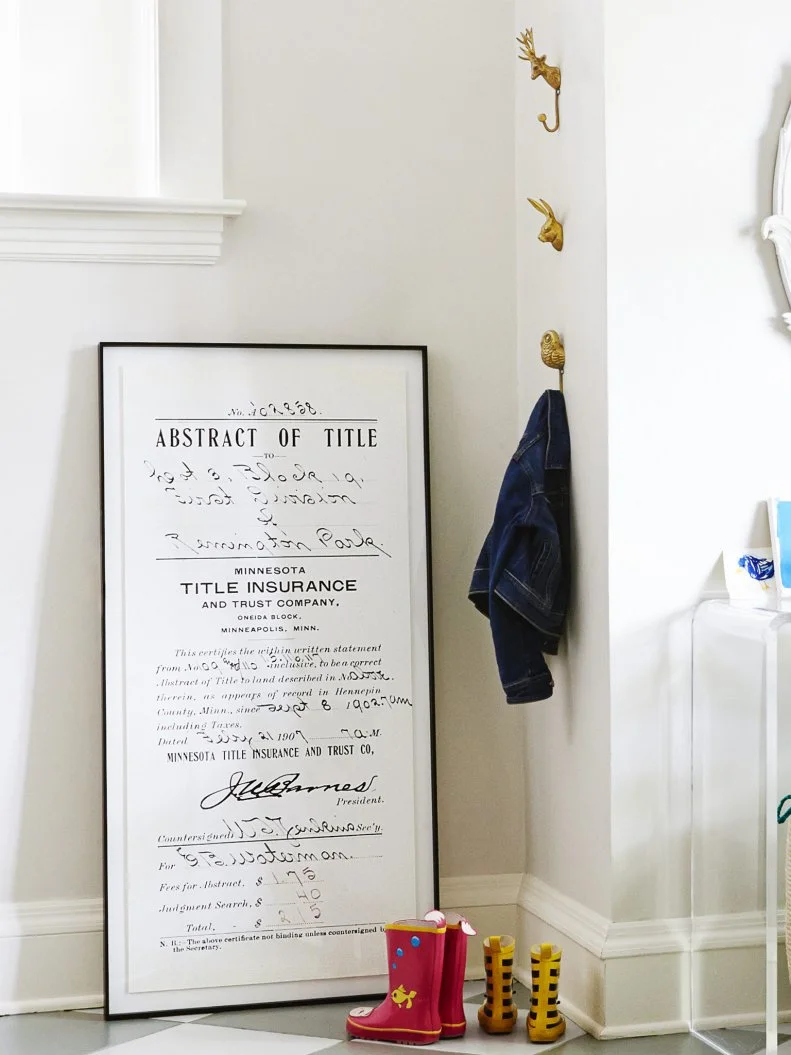 No. A 102858.
ABSTRACT OF TITLE
—TO—
Lot 3, Block 19,
First Division
&
Remington Park.
MINNESOTA
TITLE INSURANCE
AND TRUST COMPANY,
ONEIDA BLOCK,
MINNEAPOLIS, MINN.
This certifies the within written statement
from No. inclusive, to be a correct
Abstract of Title to land described in No. above.
therein, as appears of record in Hennepin
County, Minn., since Sept 8 1902. 7 am
including Taxes.
Dated 1907 7 A. M.
MINNESOTA TITLE INSURANCE AND TRUST CO,
J.U. Barnes
President.
Countersigned Jenkins Sec'y.
For Waterman.
Fees for Abstract, $ 1.75
Judgment Search, $ 40
Total, - $ 2 15
N. B.:—The above certificate not binding unless countersigned by
the Secretary.